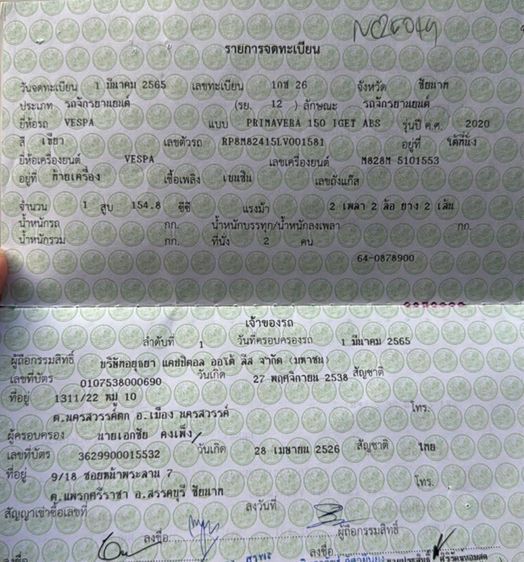 NC26079
รายการจดทะเบียน
วันจดทะเบียน 1 มีนาคม 2565 เลขทะเบียน 1กช 26 จังหวัด ชัยนาท
ประเภท รถจักรยานยนต์ (รย. 12 ) ลักษณะ รถจักรยานยนต์
ยี่ห้อรถ VESPA แบบ PRIMAVERA 150 IGET ABS รุ่นปี ค.ศ. 2020
สี เขียว เลขตัวรถ RP8M82415LV001581 อยู่ที่ ใต้ที่นั่ง
ยี่ห้อเครื่องยนต์ VESPA เลขเครื่องยนต์ M828M 5101553
อยู่ที่ ท้ายเครื่อง เชื้อเพลิง เบนซิน เลขถังแก๊ส
จำนวน 1 สูบ 154.8 ซีซี แรงม้า 2 เพลา 2 ล้อ ยาง 2 เส้น
น้ำหนักรถ กก. น้ำหนักบรรทุก/น้ำหนักลงเพลา กก.
น้ำหนักรวม กก. ที่นั่ง 2 คน
64-0878900
เจ้าของรถ
ลำดับที่ 1 วันที่ครอบครองรถ 1 มีนาคม 2565
ผู้ถือกรรมสิทธิ์ บริษัทอยุธยา แคปปิตอล ออโต้ ลีส จำกัด (มหาชน)
เลขที่บัตร 0107538000690 วันเกิด 27 พฤศจิกายน 2538 สัญชาติ
ที่อยู่ 1311/22 หมู่ 10
ต.นครสวรรค์ตก อ.เมือง นครสวรรค์ โทร.
ผู้ครอบครอง นายเอกชัย คงเพ็ง
เลขที่บัตร 3629900015532 วันเกิด 28 เมษายน 2526 สัญชาติ ไทย
ที่อยู่ 9/18 ซอยหน้าพระลาน 7
ต.แพรกศรีราชา อ.สรรคบุรี ชัยนาท โทร.
สัญญาเช่าซื้อเลขที่ ลงวันที่
ลงชื่อ ผู้ถือกรรมสิทธิ์
ลงชื่อ ลงชื่อ